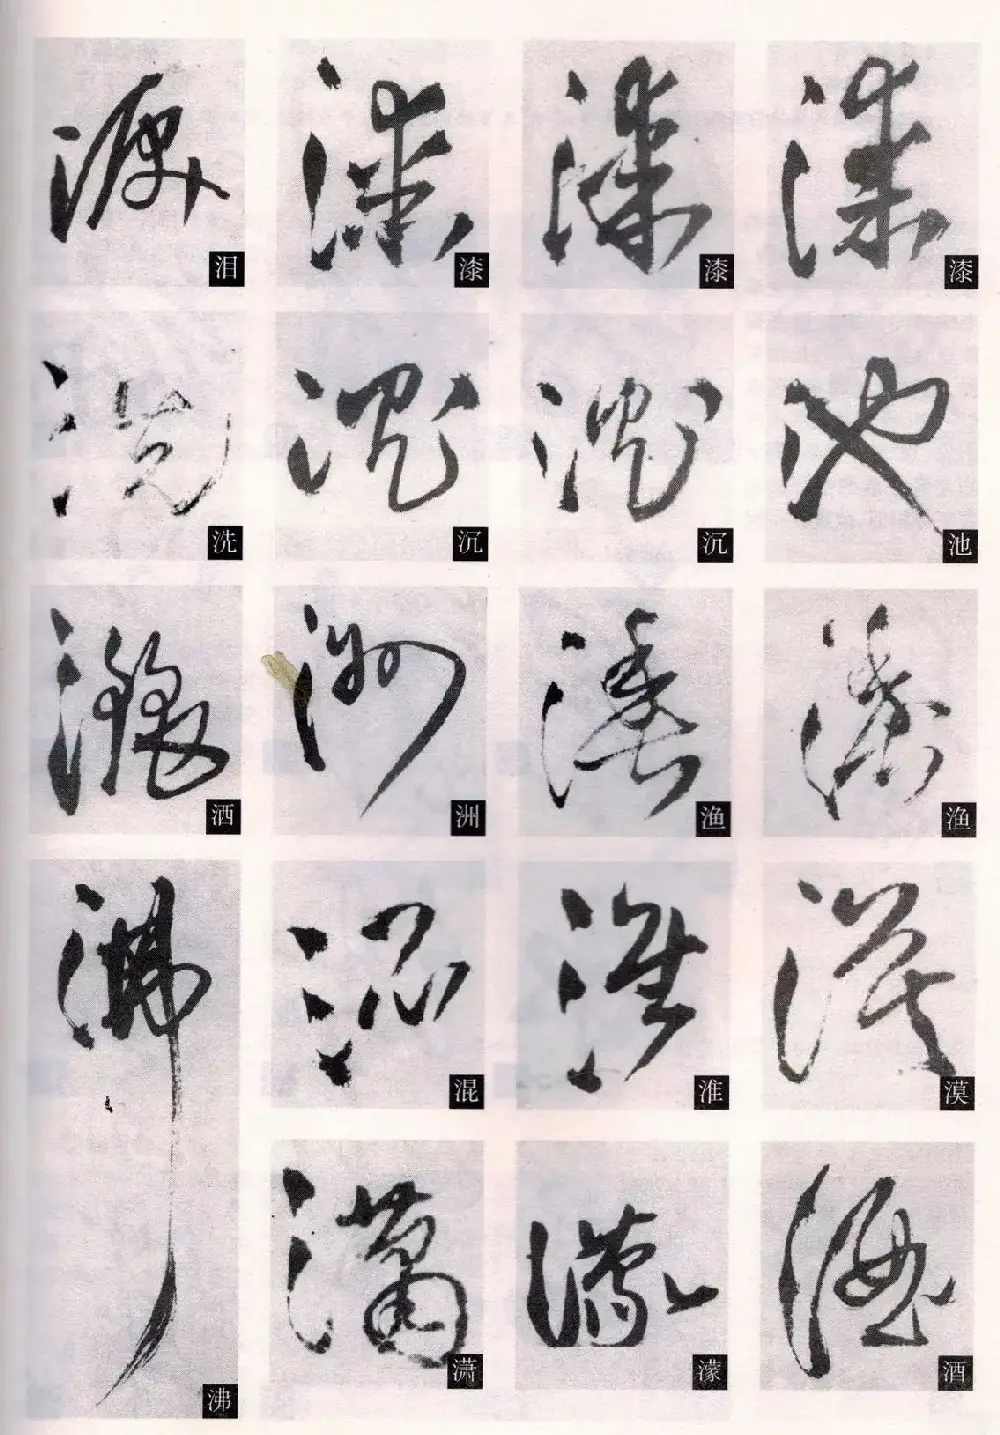 泪 漆 漆 漆
洗 沉 沉 池
洒 洲 渔 渔
沸 混 淮 漠
潇 濛 酒